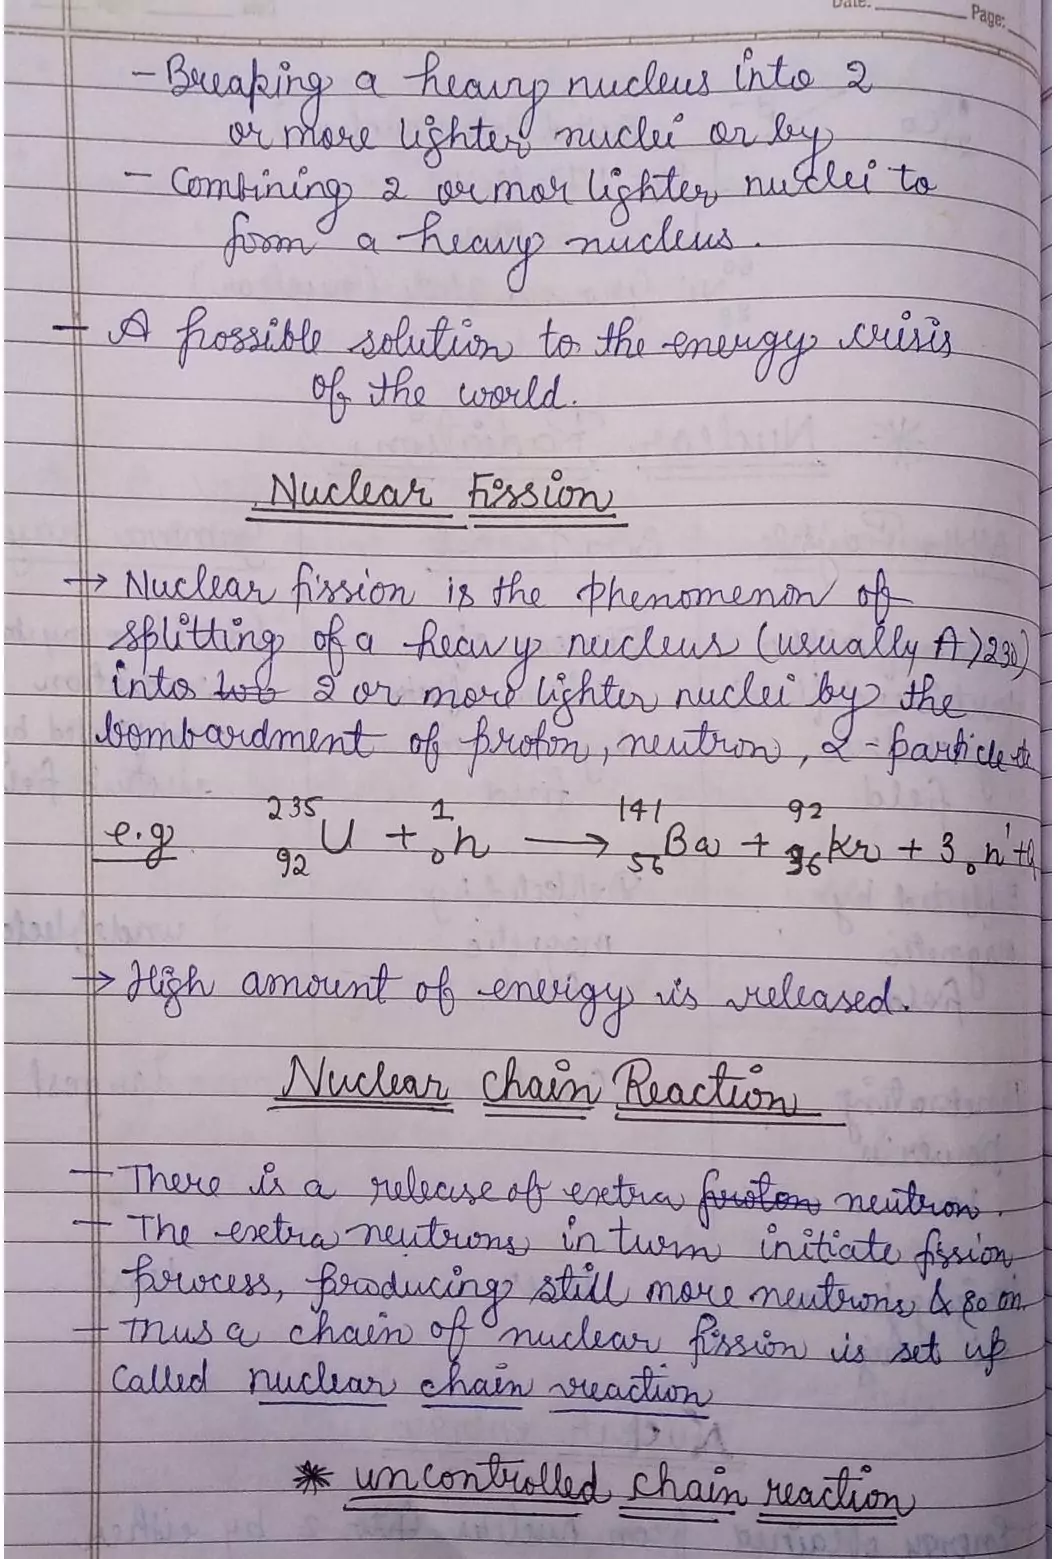 Date: Page:
- Breaking a heavy nucleus into 2
or more lighter nuclei or by
- Combining 2 or mor lighter nuclei to
form a heavy nucleus.
- A possible solution to the energy crisis
of the world.
Nuclear Fission
→ Nuclear fission is the phenomenon of
splitting of a heavy nucleus (usually A>230)
into 2 or more lighter nuclei by the
bombardment of proton, neutron, α-particle
e.g. ²³⁵₉₂U + ¹₀n ⟶ ¹⁴¹₅₆Ba + ⁹²₃₆Kr + 3 ₀n¹ + Q
→ High amount of energy is released.
Nuclear chain Reaction
- There is a release of extra proton neutron.
- The extra neutrons in turn initiate fission
process, producing still more neutrons & so on.
- Thus a chain of nuclear fission is set up
called nuclear chain reaction
* uncontrolled chain reaction